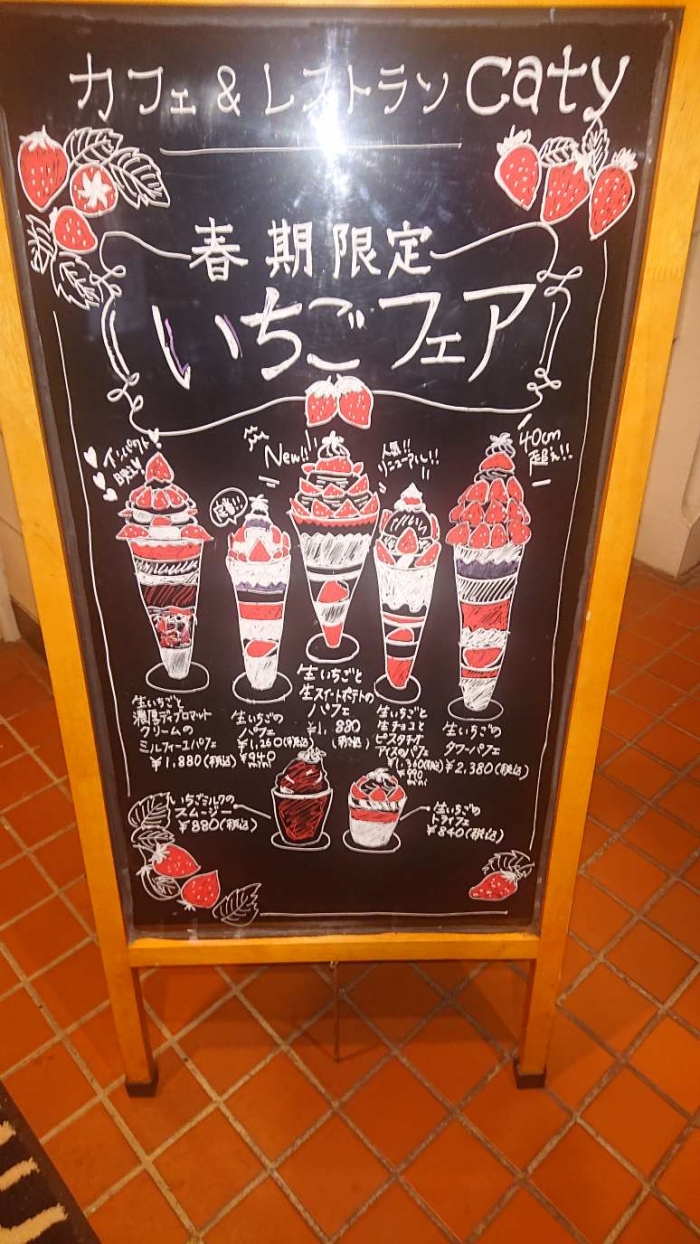 カフェ & レストラン caty
春期限定
いちごフェア
インパクト
New!!
人気!!
リニューアル!!
40cm
超え!!
定番!!
生いちごと
濃厚ディプロマット
クリームの
ミルフィーユパフェ
¥1,880(税込)
生いちごの
パフェ
¥1,260(税込)
¥940
mini
生いちごと
生スイートポテトの
パフェ
¥1,880
(税込)
生いちごと
生チョコと
ピスタチオ
アイスのパフェ
(税込)
¥990
mini
生いちごの
タワーパフェ
¥2,380(税込)
いちごミルクの
スムージー
¥880(税込)
生いちごの
トライフル
¥840(税込)